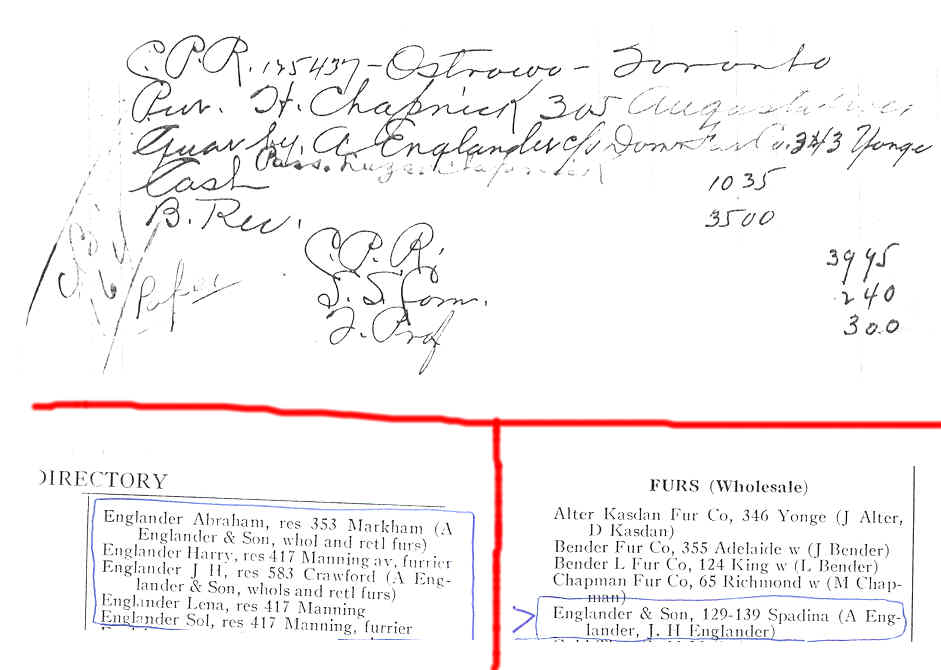 C.P.R. 175437 - Ostrowo - Toronto
Pur. H. Chapnick 305 Augusta Ave
Guar by. A. Englander c/o Dom Fur Co. 343 Yonge
Pass. Chapnick
Cash 1035
B. Rec. 3500
C.P.R. 3995
S.S. Com. 240
T. Prof 300
DIRECTORY
Englander Abraham, res 353 Markham (A
Englander & Son, whol and retl furs)
Englander Harry, res 417 Manning av, furrier
Englander J H, res 583 Crawford (A Eng-
lander & Son, whols and retl furs)
Englander Lena, res 417 Manning
Englander Sol, res 417 Manning, furrier
FURS (Wholesale)
Alter Kasdan Fur Co, 346 Yonge (J Alter,
D Kasdan)
Bender Fur Co, 355 Adelaide w (J Bender)
Bender L Fur Co, 124 King w (L Bender)
Chapman Fur Co, 65 Richmond w (M Chap-
man)
Englander & Son, 129-139 Spadina (A Eng-
lander, J. H Englander)